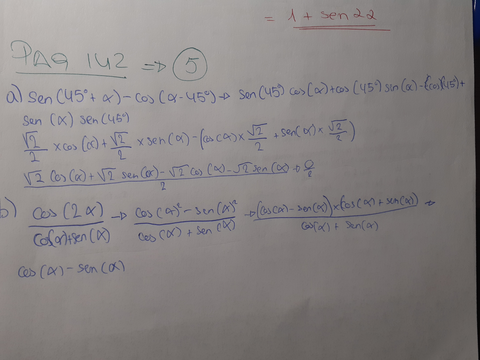 = 1 + sen 2α
PAG 142 => 5
a) sen (45° + α) - cos (α - 45°) → sen (45°) cos (α) + cos (45°) sen (α) - (cos(45) +
sen (α) sen (45°)
√2/2 × cos (α) + √2/2 × sen (α) - (cos (α) × √2/2 + sen (α) × √2/2)
√2 cos (α) + √2 sen (α) - √2 cos (α) - √2 sen (α) / 2 → 0/2
b) cos (2α) / cos(α) + sen (α) → cos (α)² - sen (α)² / cos (α) + sen (α) → (cos (α) - sen (α)) × (cos (α) + sen (α)) / cos (α) + sen (α) =
cos (α) - sen (α)